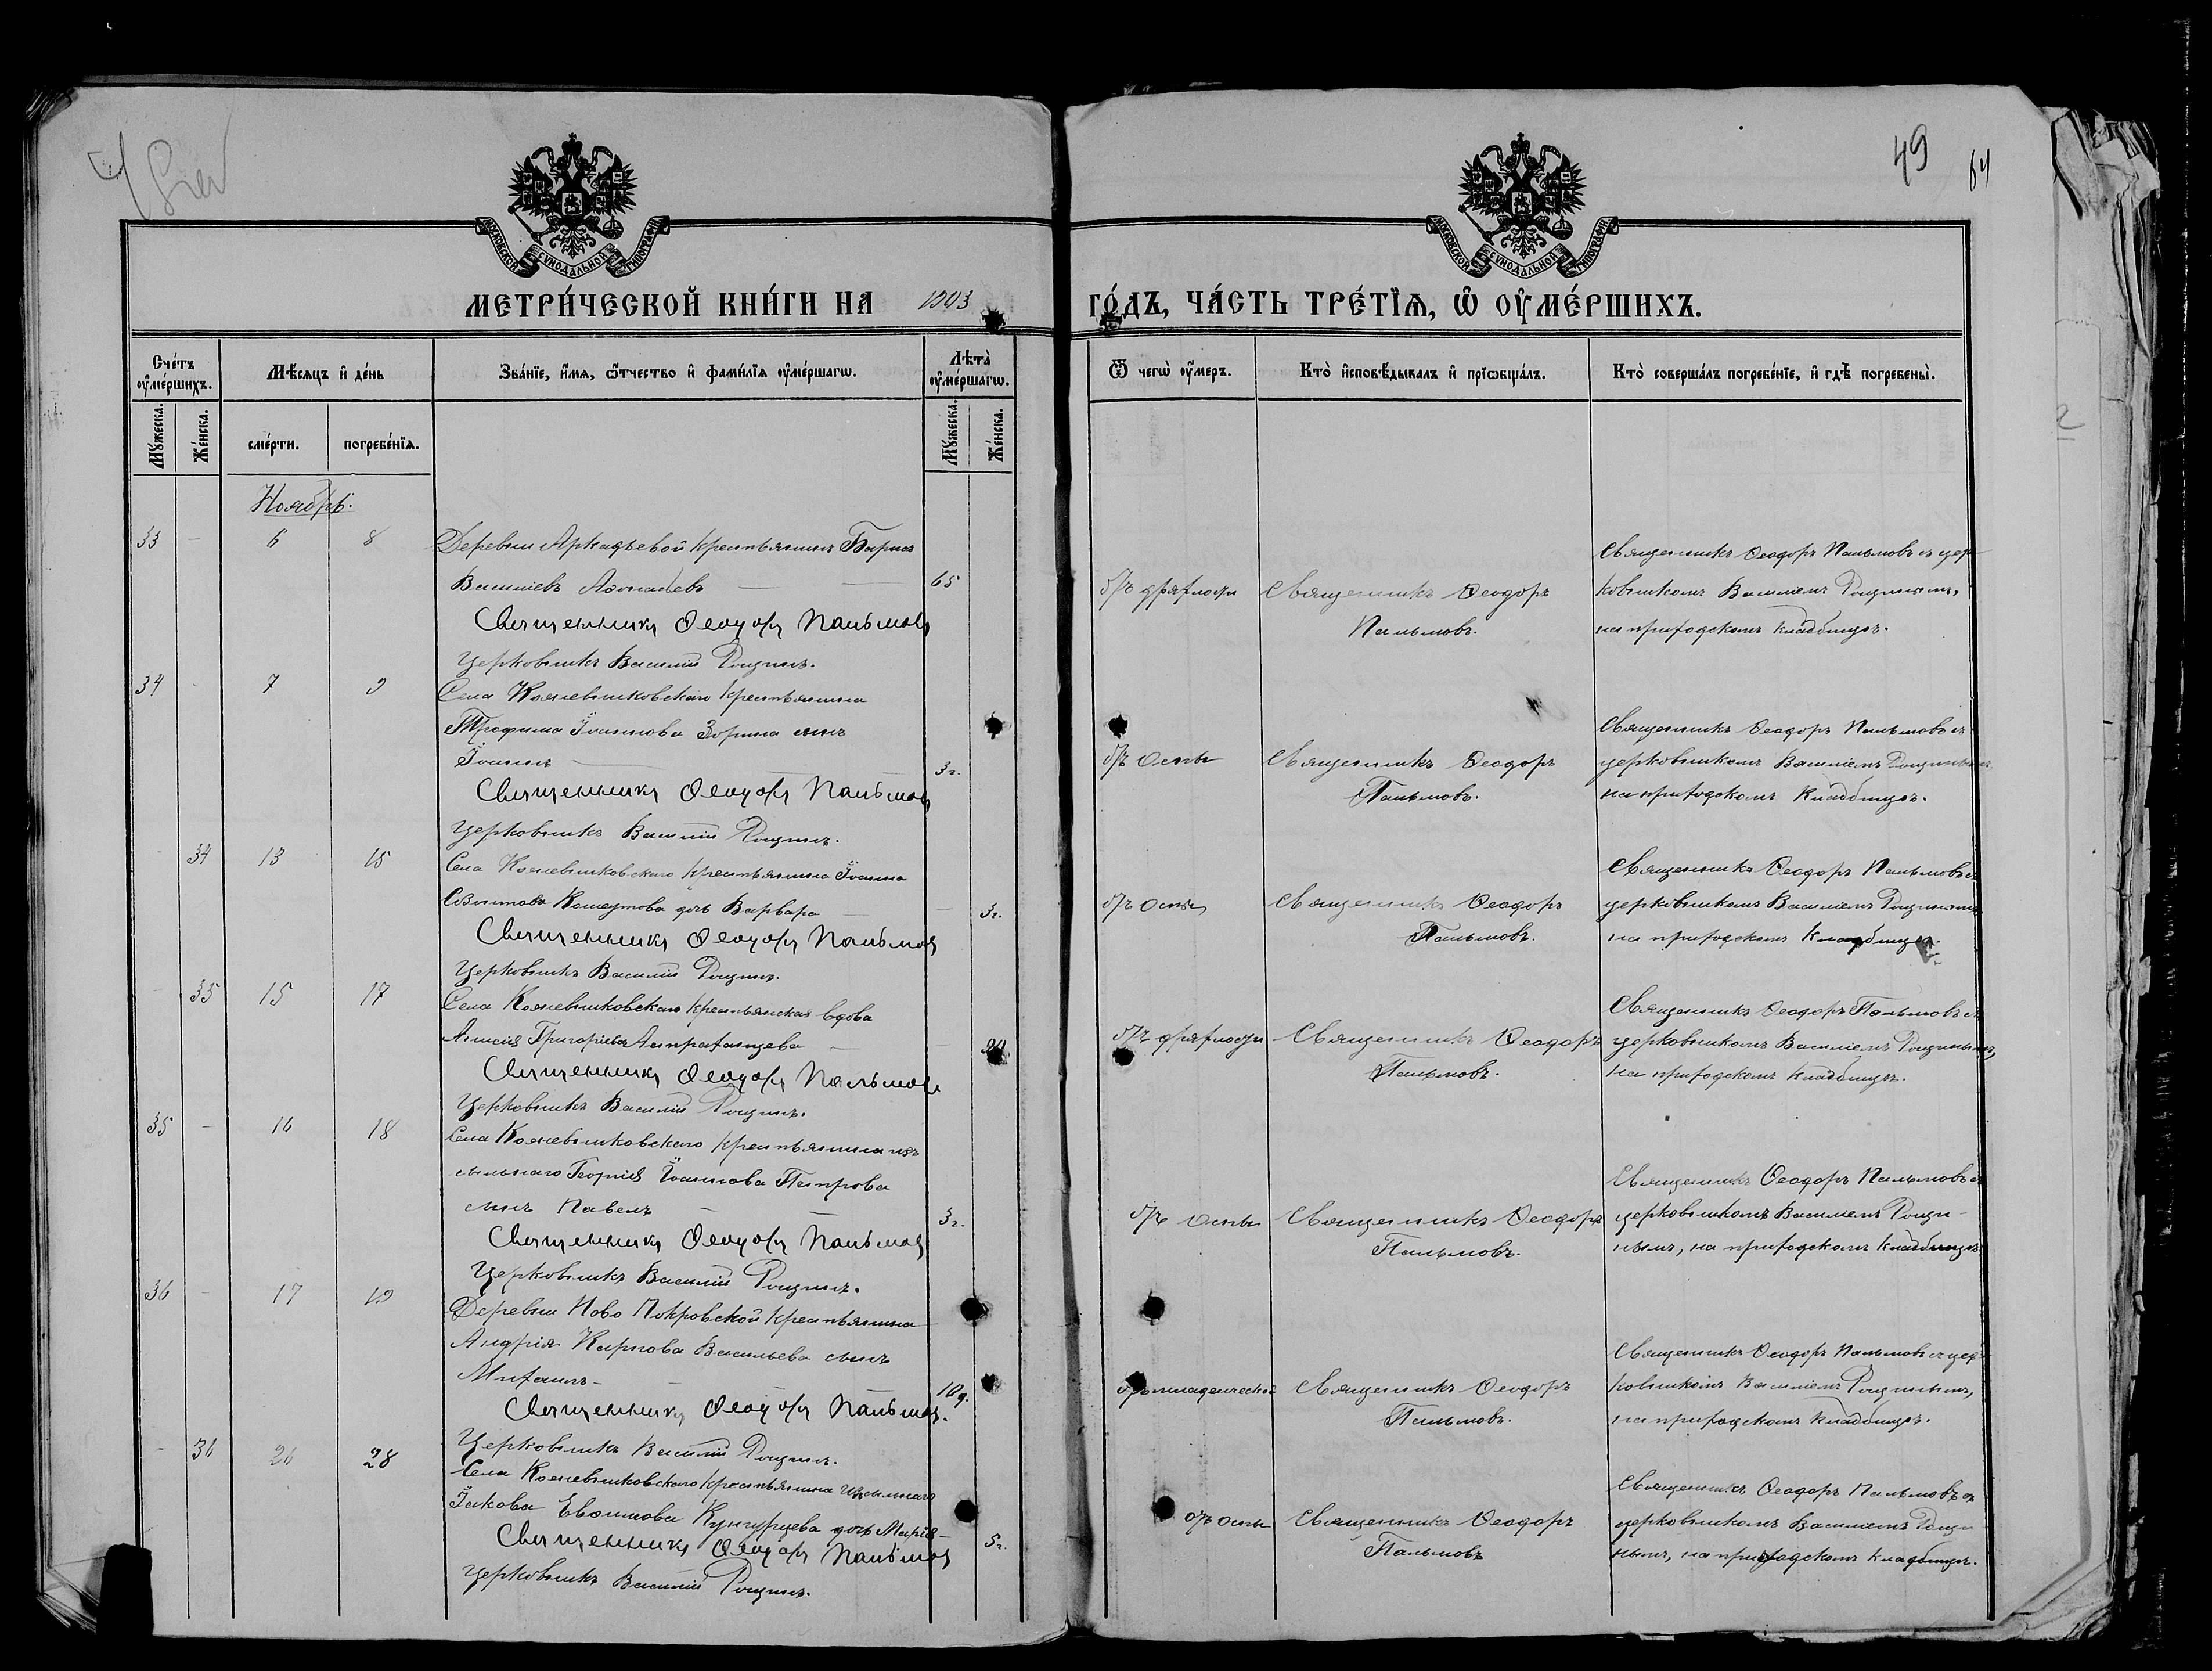 49 64
МОСКОВСКОЙ СУНОДАЛЬНОЙ ТИПОГРАФІИ
МОСКОВСКОЙ СУНОДАЛЬНОЙ ТИПОГРАФІИ
МЕТРИ́ЧЕСКОЙ КНИ́ГИ НА 1903
ГО́ДЪ, ЧА́СТЬ ТРЕ́ТЇѦ, Ѡ҆ ОУ҆МЕ́РШИХЪ.
Сче́тъ оу҆ме́ршихъ.
Мѣ́сѧцъ и҆ де́нь
Зва́нїе, и҆́мѧ, ѻ҆́тчество и҆ фами́лїѧ оу҆ме́ршагѡ.
Лѣ́та оу҆ме́ршагѡ.
Ѿ чегѡ̀ оу҆́меръ.
Кто̀ и҆сповѣ́дывалъ и҆ прїѡбща́лъ.
Кто̀ соверша́лъ погребе́нїе, и҆ гдѣ̀ погребены̀.
Мꙋ́жеска. Же́нска.
сме́рти. погребе́нїѧ.
Мꙋ́жеска. Же́нска.
Ноябрь.
33 - 6 8 Деревни Аркадьевой крестьянинъ Борисъ
Василіевъ Аѳонасьевъ — — 65
Священникъ Ѳеодоръ Пальмовъ
Церковникъ Василій Рощинъ.
отъ дряхлости
Священникъ Ѳеодоръ
Пальмовъ.
Священникъ Ѳеодоръ Пальмовъ съ цер-
ковникомъ Василіемъ Рощинымъ,
на приходскомъ кладбищѣ.
34 - 7 9 Села Кожевниковскаго крестьянина
Трофима Іоаннова Зорина сынъ
Іоаннъ — 3 г.
Священникъ Ѳеодоръ Пальмовъ
Церковникъ Василій Рощинъ.
отъ оспы
Священникъ Ѳеодоръ
Пальмовъ.
Священникъ Ѳеодоръ Пальмовъ съ
церковникомъ Василіемъ Рощинымъ
на приходскомъ кладбищѣ.
- 34 13 15 Села Кожевниковскаго крестьянина Іоанна
дочь Варвара — 3 г.
Священникъ Ѳеодоръ Пальмовъ
Церковникъ Василій Рощинъ.
отъ оспы
Священникъ Ѳеодоръ
Пальмовъ.
Священникъ Ѳеодоръ Пальмовъ съ
церковникомъ Василіемъ Рощинымъ
на приходскомъ кладбищѣ.
- 35 15 17 Села Кожевниковскаго крестьянская вдова
Анисія Григоріева Астраханцева —
Священникъ Ѳеодоръ Пальмовъ
Церковникъ Василій Рощинъ.
отъ дряхлости
Священникъ Ѳеодоръ
Пальмовъ.
Священникъ Ѳеодоръ Пальмовъ съ
церковникомъ Василіемъ Рощинымъ,
на приходскомъ кладбищѣ.
35 - 16 18 Села Кожевниковскаго крестьянина изъ
сыльнаго Георгія Іоаннова Петрова
сынъ Павелъ — — 3 г.
Священникъ Ѳеодоръ Пальмовъ
Церковникъ Василій Рощинъ.
отъ оспы
Священникъ Ѳеодоръ
Пальмовъ.
Священникъ Ѳеодоръ Пальмовъ съ
церковникомъ Василіемъ Рощи-
нымъ, на приходскомъ кладбищѣ.
36 - 17 19 Деревни Ново Покровской крестьянина
Андрія Карпова Васильева сынъ
Михаилъ - — 10 д.
Священникъ Ѳеодоръ Пальмовъ.
Церковникъ Василій Рощинъ.
отъ младенческой
Священникъ Ѳеодоръ
Пальмовъ.
Священникъ Ѳеодоръ Пальмовъ съ цер-
ковникомъ Василіемъ Рощинымъ,
на приходскомъ кладбищѣ.
- 36 26 28 Села Кожевниковскаго крестьянина изъ сыльнаго
Іакова Евѳимова Кунгурцева дочь Марія —
5 г.
Священникъ Ѳеодоръ Пальмовъ
Церковникъ Василій Рощинъ.
отъ оспы
Священникъ Ѳеодоръ
Пальмовъ
Священникъ Ѳеодоръ Пальмовъ съ
церковникомъ Василіемъ Рощи-
нымъ, на приходскомъ кладбищѣ.